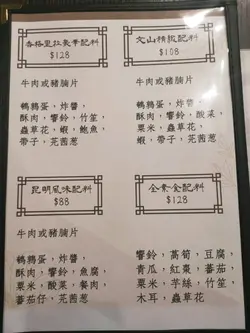 香格里拉豪華配料
$128
牛肉或豬腩片
鵪鶉蛋，炸醬，
酥肉，響鈴，竹笙，
蟲草花，蝦，鮑魚，
帶子，芫茜葱
文山精緻配料
$108
牛肉或豬腩片
鵪鶉蛋，炸醬，
酥肉，響鈴，酸菜，
粟米，蟲草花，
蝦，芫茜葱
昆明風味配料
$88
牛肉或豬腩片
鵪鶉蛋，炸醬，
酥肉，響鈴，魚腐，
粟米，酸菜，餐肉，
蕃茄仔，芫茜葱
全素食配料
$128
響鈴，萵筍，豆腐，
青瓜，紅棗，蕃茄，
粟米，芋絲，竹笙，
木耳，蟲草花